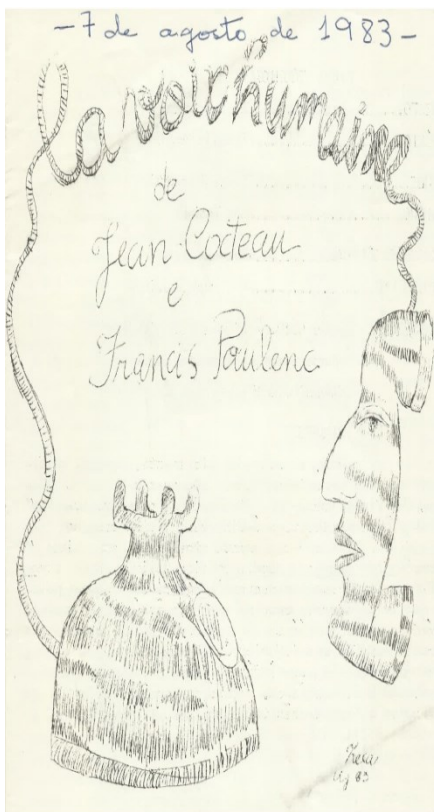 -7 de agosto de 1983-
la voix humaine
de
Jean Cocteau
e
Francis Poulenc
83